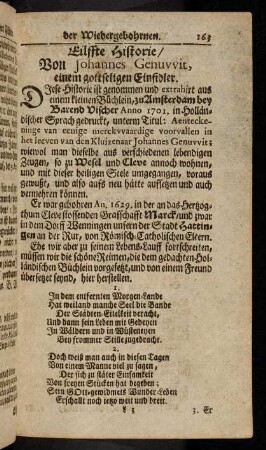 der Wiedergebohrnen. 163
Eilffte Historie/
Von Johannes Genuvvit,
einem gottseligen Einsidler.
Diese Historie ist genommen und extrahirt aus
einem kleinen Büchlein, zu Amsterdam bey
Barend Vischer Anno 1701, in Hollän-
discher Sprach gedruckt, unterm Titul: Aenteecke-
ninge van eenige merckvvaardige voorvallen in
het leeven van den Kluizenaar Johannes Genuvvit;
wiewol man dieselbe aus verschiedenen lebendigen
Zeugen, so zu Wesel und Cleve annoch wohnen,
und mit dieser heiligen Seele umgegangen, voraus
gewußt, und also aufs neu hätte aufsetzen und auch
vermehren können.
Er war gebohren An. 1629, in der an das Hertzog-
thum Cleve stossenden Grafschafft Marck/und zwar
in dem Dorff Wenningen unfern der Stadt Hattin-
gen an der Rur, von Römisch-Catholischen Eltern.
Ehe wir aber zu seinem Lebens-Lauff fortschreiten,
müssen wir die schöne Reimen, die dem gedachten Hol-
ländischen Büchlein vorgesetzt, und von einem Freund
übersetzt seynd, hier herstellen.
1.
In dem entfernten Morgen-Lande
Hat weiland manche Seel die Bande
Der Städten Eitelkeit veracht,
Und dann sein Leben mit Gedroen
In Wäldern und in Wüsteneyen
Bey frommer Stille zugebracht.
2.
Doch weiß man auch in diesen Tagen
Von einem Manne viel zu sagen,
Der sich zu stäter Einsamkeit
Von freyen Stücken hat begeben;
Sein GOtt-gewidmets Wunder-Leben
Erschallt noch jetzo weit und breit.
3. Er